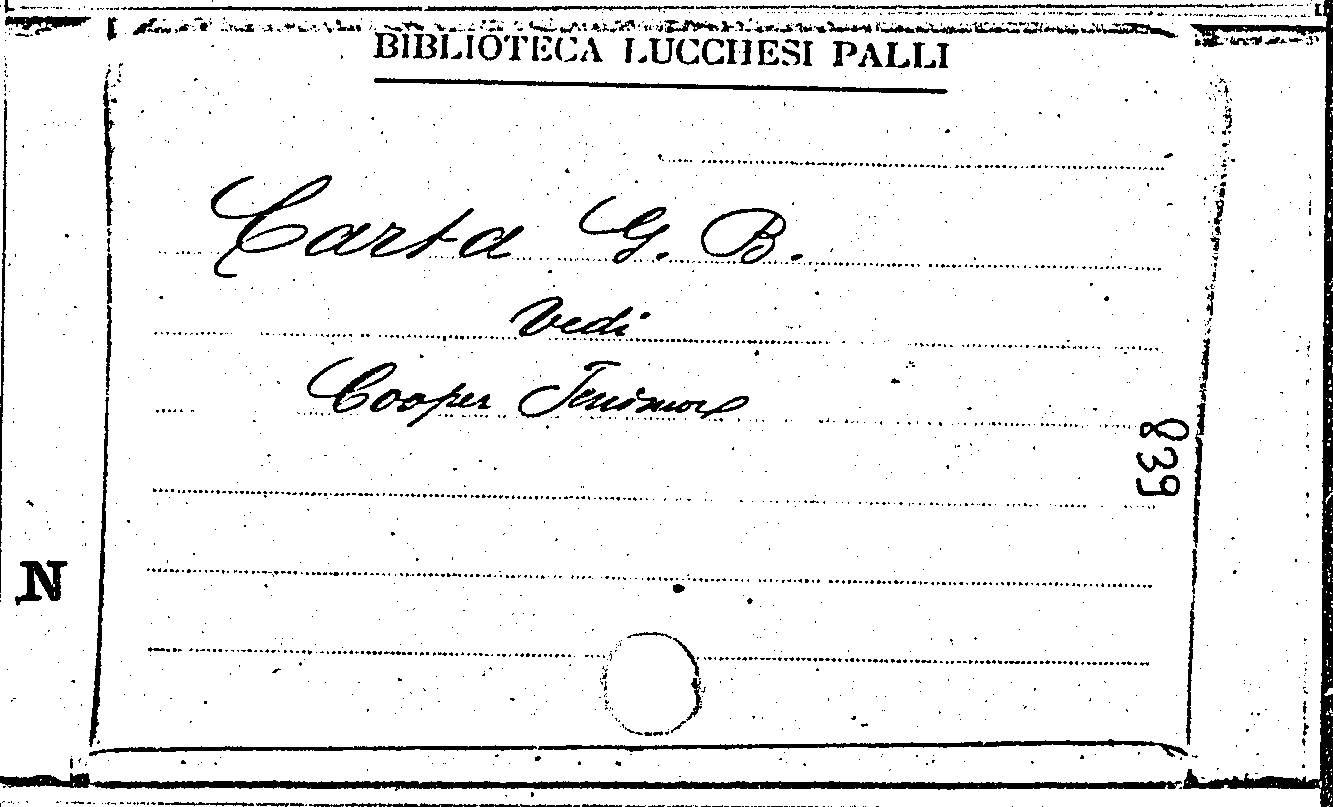 BIBLIOTECA LUCCHESI PALLI
Carta G. B.
Vedi
Cooper Fenimore
839
N